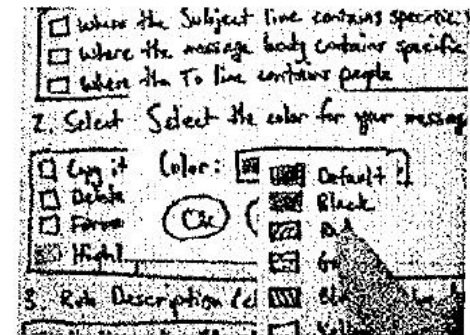 where the Subject line contains specific
where the message body contains specific
where the To line contains people
2. Select Select the color for your messag
Copy it Color: Default
Delete Black
Forwa Ok
Highl
3. Rule Description (cl